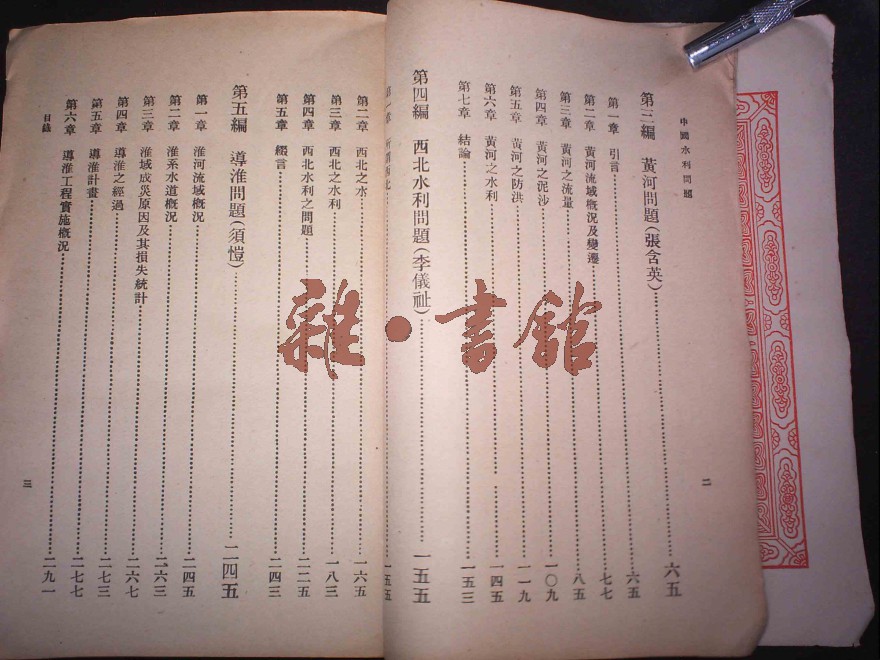 中國水利問題
第三編 黃河問題(張含英)……六五
第一章 引言……六五
第二章 黃河流域概況及變遷……七七
第三章 黃河之流量……八五
第四章 黃河之泥沙……一〇九
第五章 黃河之防洪……一一九
第六章 黃河之水利……一四五
第七章 結論……一五三
第四編 西北水利問題(李儀祉)……一五五
第一章 所謂西北……一五五
二
第二章 西北之水……一六五
第三章 西北之水利……一八三
第四章 西北水利之問題……二二五
第五章 綴言……二四三
第五編 導淮問題(須愷)……二四五
第一章 淮河流域概況……二四五
第二章 淮系水道概況……二六三
第三章 淮域成災原因及其損失統計……二六七
第四章 導淮之經過……二七三
第五章 導淮計畫……二七七
第六章 導淮工程實施概況……二九一
目錄
三
雜·書館